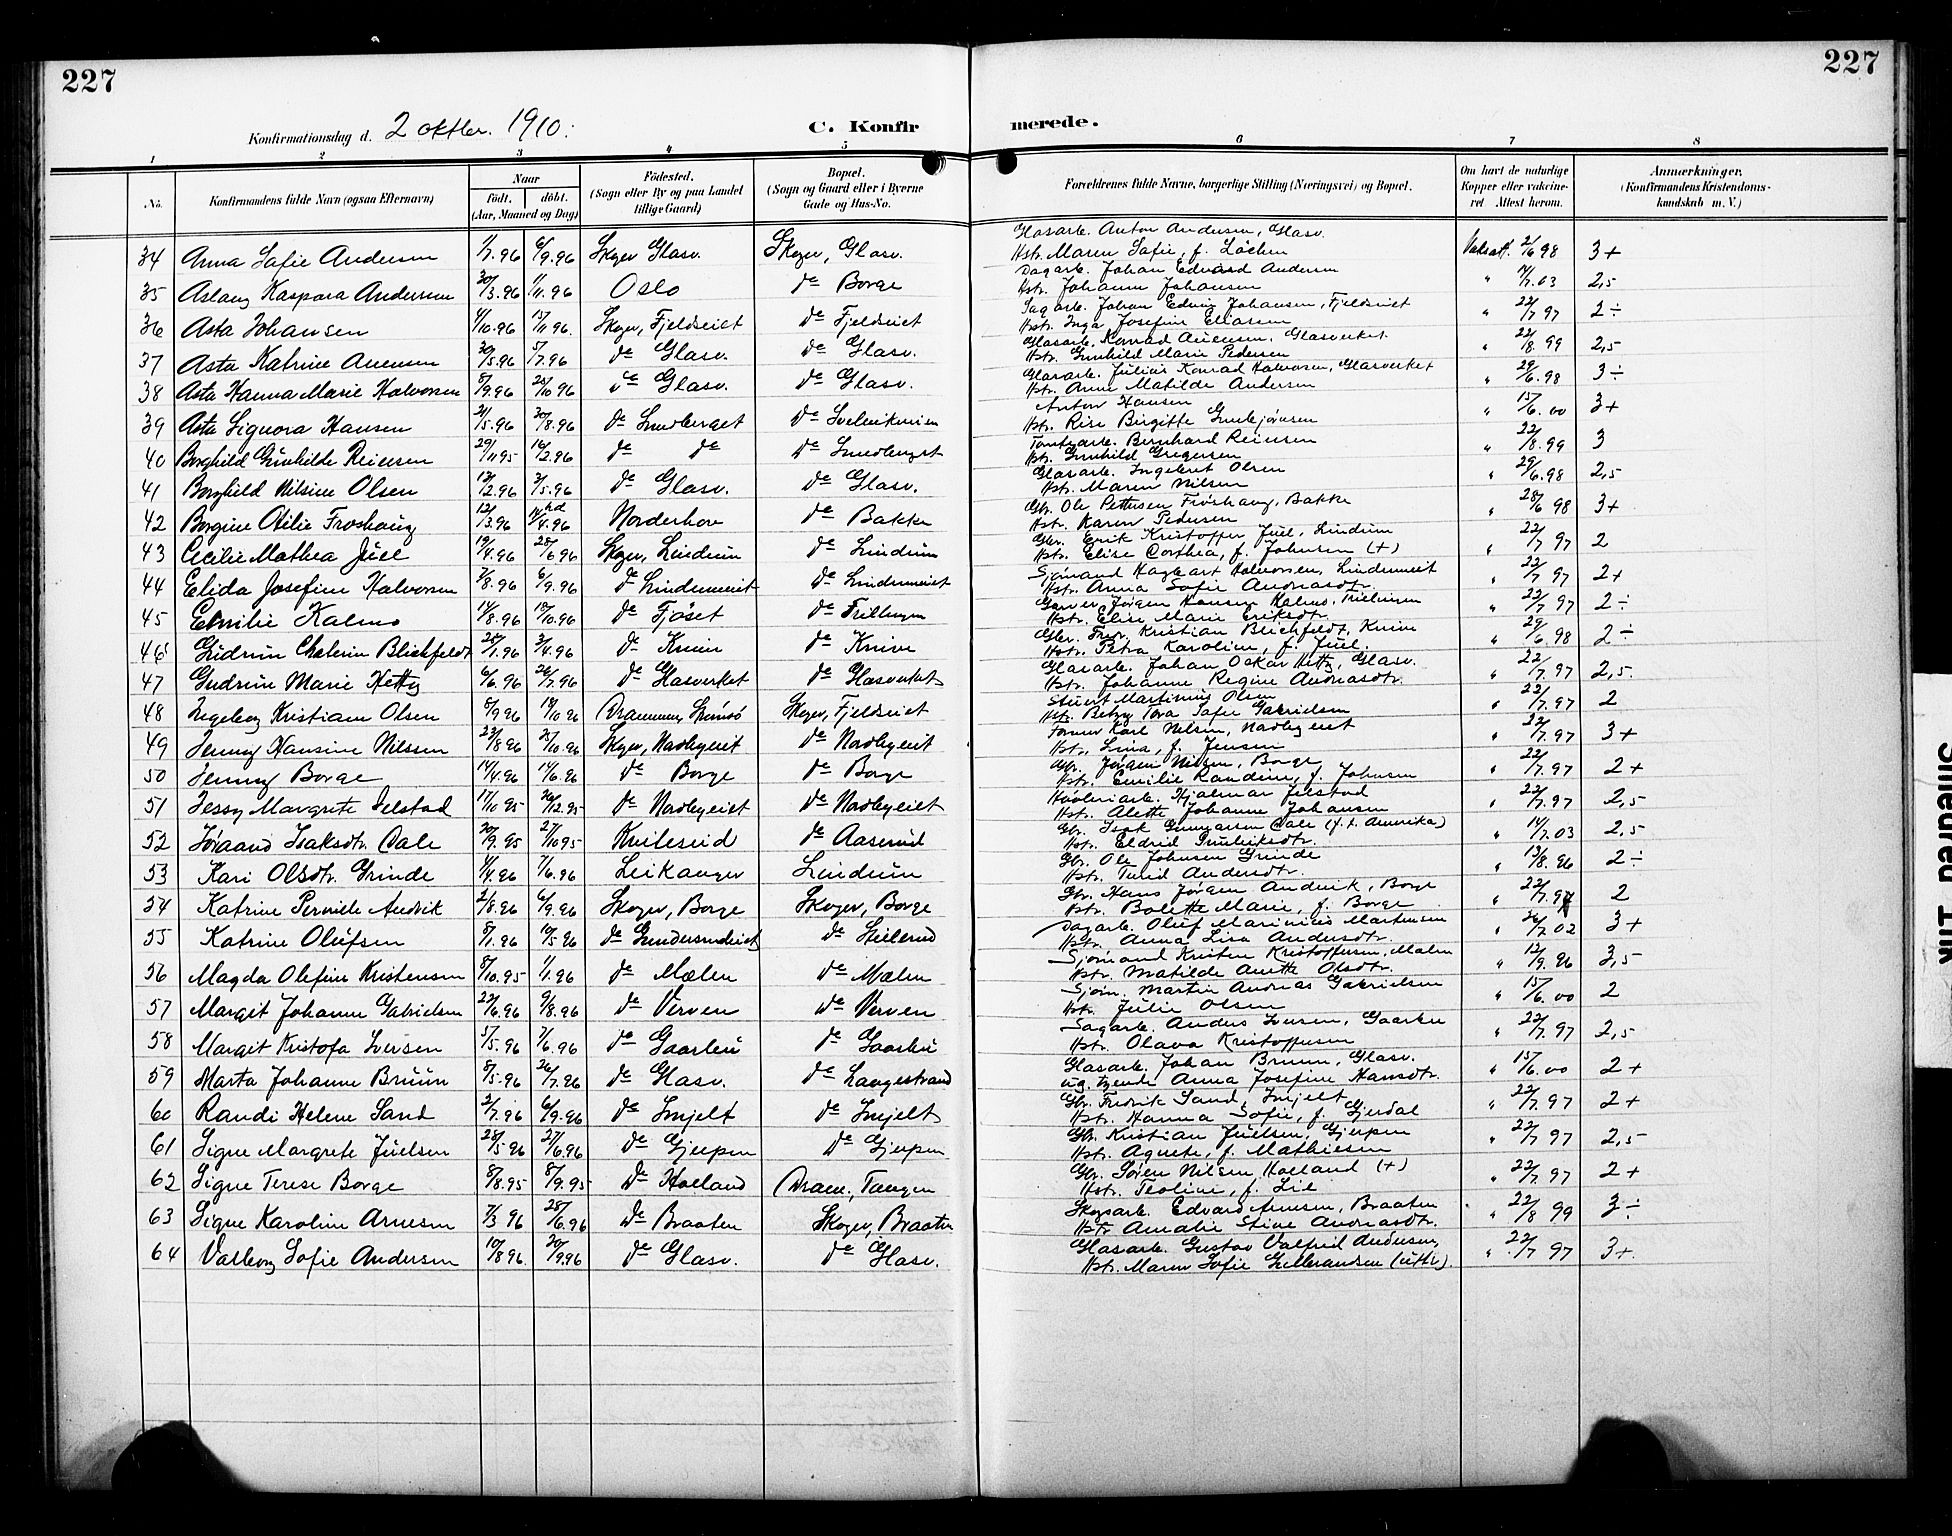 227
227
Konfirmationsdag d. 2 oktbr. 1910.
C. Konfirmerede.
1 2 3 4 5 6 7 8
No.
Konfirmandens fulde Navn (ogsaa Efternavn)
Naar
født. døbt.
(Aar, Maaned og Dag)
Fødested.
(Sogn eller By og paa Landet
tillige Gaard)
Bopæl.
(Sogn og Gaard eller i Byerne
Gade og Hus-No.
Forældrenes fulde Navne, borgerlige Stilling (Næringsvei) og Bopæl.
Om havt de naturlige
Kopper eller vakcine-
ret Attest herom.
Anmærkninger.
(Konfirmandens Kristendoms-
kundskab m. V.)
34 Anna Sofie Andersen 1/7.96 6/9.96 Skoger Glasv. Skoger, Glasv. Glasarb. Anton Andersen, Glasv. Hstr. Maren Sofie, f. Løcken Vakcatt. 2/6 98 3+
35 Aslaug Kaspara Andersen 30/3.96 1/11.96 Oslo do Borge Dagarb. Johan Edvard Andersen Hstr. Johanne Johansen " 7.03 2,5
36 Asta Johansen 4/10.96 15/11 96. Skoger, Fjeldseiet do Fjeldseiet Sagarb. Johan Edvin Johansen, Fjeldseiet Hstr. Inga Josefine Eliasen " 22/7 97 2÷
37 Asta Katrine Auensen 30/5.96 5/7.96 do Glasv. do Glasv. Glasarb. Konrad Auensen, Glasverket Hstr. Gunhild Marie Pedersen " 22/8. 99 2,5
38 Asta Hanna Marie Halvorsen 8/9.96 25/10 96 do Glasv. do Glasv. Glasarb. Julius Konrad Halvorsen, Glasverket Hstr. Anne Matilde Andersen " 29/6.98 3÷
39 Asta Signora Hansen 21/5.96 30/8.96 do Smedberget do Anton Hansen Hstr. Rise Birgitte " 15/6.00 3+
40 Borghild Gunhilde Reiersen 29/11 95 16/2.96 do do do Smedberget Tomtearb. Bernhard Reiersen Hstr. Gunhild Gregersen " 22/8.99 3
41 Borghild Nilsine Olsen 12/2.96 3/5.96 do Glasv. do Glasv. Glasarb. Ingebret Olsen Hstr. Maren Nilsen " 29/6.98 2,5
42 Borgine Otilie Froshaug 12/3.96 14/4.96 hd Norderhov do Bakke Gbr. Ole Pettersen Froshaug, Bakke Hstr. Karen Pedersen " 28/6 98 3+
43 Cecilie Mathea Juel 19/4.96 28/6 96 Skoger, Lindrum do Lindrum Gbr. Erik Kristoffer Juel, Lindrum Hstr. Elise Dorthea, f. Johnsen (+) " 22/7 97 2
44 Elida Josefine Halvorsen 2/8.96 6/9.96 do Lindrumeiet do Lindrumeiet Sjømand Hagbart Halvorsen, Lindrumeiet Hstr. Anna Sofie Andreasdtr. " 22/7 97 2+
45 Emilie Kalmo 14/8.96 18/10.96 do Fjøset do Garver Jørgen Hansen Kalmo, Hstr. Elise Marie Eriksdtr. " 22/7 97 2÷
46 Gudrun Blichfeldt 28/1.96 3/4.96 do Knive do Knive Gbr. Fredr. Kristian Blichfeldt, Knive Hstr. Petra Karoline, f. Juul. " 29/6 98 2÷
47 Gudrun Marie Hetty 6/6.96 26/7.96 do Glasverket do Glasverket Glasarb. Johan Oskar Hetty, Glasv. Hstr. Johanne Regine Andreasdtr. " 22/7.97 2,5.
48 Ingeborg Kristiane Olsen 8/9 96 18/10 96 Drammen, Skoger, Fjeldseiet Stuert Martinius Olsen Hstr. Betzy Tora Sofie Gabrielsen " 22/7.97 2
49 Jenny Hansine Nilssen 22/8 96 25/10.96 Skoger, Nordbyeiet do Nordbyeiet Former Karl Nilsen, Nordbyeiet Hstr. Lina, f. Jensen " 22/7.97 3+
50 Jenny Borge 14/4.96 14/6.96 do Borge do Borge Gbr. Jørgen Nilsen, Borge Hstr. Emilie Randine, f. Johnsen " 22/7.97 2+
51 Jessy Margrete Jelstad 17/10 95 26/12.95 do Nordbyeiet do Nordbyeiet Hjalmar Jelstad Hstr. Alette Johanne Johansen " 22/7.97 2,5
52 Jøraand Isaksdtr. Dale 20/9.95 27/10 95 Kviteseid do Aaserud Gbr. Isak Gunnarsen Dale (f. t. Amerika) Hstr. Eldrid " 14/7.03 2,5
53 Kari Olsdtr. Grinde 4/4.96 7/6.96 Leikanger Lindrum Gbr. Ole Johnsen Grinde Hstr. Turid Andersdtr. " 13/8.96 2÷
54 Katrine Pernille Andvik 2/8.96 6/9.96 Skoger, Borge Skoger, Borge Gbr. Hans Jørgen Andvik, Borge Hstr. Bolette Marie, f. Borge " 22/7.97 2
55 Katrine Olufsen 8/1.96 10/5 96 do do Dagarb. Oluf Marinius Martinsen Hstr. Anna Lisa Andersdtr. " 26/7 02 3+
56 Magda Olefine Kristensen 8/10.95 1/1.96 do Mælen do Mælen Sjømand Kristen Kristoffersen, Mælen Hstr. Matilde Anette Olsdtr. " 12/9.96 3,5
57 Margit Johanne Gabrielsen 22/6.96 9/8.96 do Verven do Verven Sjøm. Martin Andreas Gabrielsen Hstr. Julie Olsen " 15/6.00 2
58 Margit Kristofa Iversen 5/5.96 7/6.96 do Gaarden do Gaarden Sagarb. Anders Iversen, Gaarden Hstr. Olava Kristoffersen " 22/7.97 2,5
59 Marta Johanne Bruun 8/5.96 26/7.96 do Glasv. do Langestrand Glasarb. Johan Bruun, Glasv. ug. tjende Anna Josefine Hansdtr. " 15/6.00 2+
60 Randi Helene Sand 2/7.96 6/9.96 do Imjelt do Imjelt Gbr. Fredrik Sand, Imjelt Hstr. Hanna Sofie, f. Gjerdal " 22/7.97 2+
61 Signe Margrete Juelsen 28/5 96 27/6.96 do Gjerpen do Gjerpen Gbr. Kristian Juelsen, Gjerpen Hstr. Agnete, f. Mathiesen " 22/7 97 2,5
62 Signe Terese Borge 8/8.95 8/9.95 do Holland Dram., Tangen Gbr. Søren Nilsen Holland (+) Hstr. Teoline, f. Lie " 22/7.97 2+
63 Signe Karoline Arnesen 7/3 96 28/6.96 do Braaten Skoger, Braaten Skogsarb. Edvard Arnesen, Braaten Hstr. Amalie Stine Andreasdtr. " 22/8 99 3÷
64 Valborg Sofie Andersen 10/8 96 20/9.96 do Glasv. do Glasv. Glasarb. Gustav Valfrid Andersen, Hstr. Maren Sofie Gulbrandsen (uttr). " 22/7 97 3+.